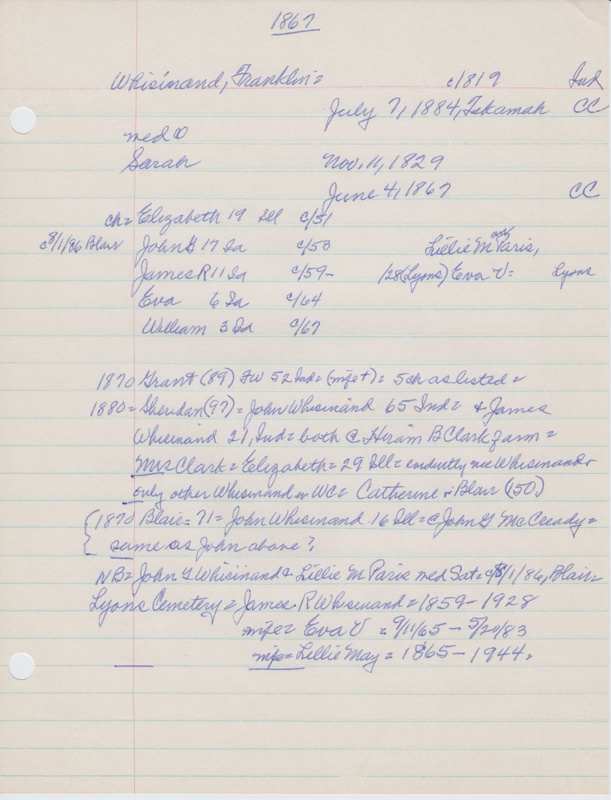 1867
Whisinand, Franklin = c1819 Ind
July 7, 1884, Tekamah CC
med
Sarah Nov. 11, 1829
June 4, 1867 CC
ch = Elizabeth 19 Ill c/51
c8/1/86 Blair John G 17 Ia c/53 Lillie M Paris,
James R 11 Ia c/59- (28 (Lyons) Eva V = Lyons
Eva 6 Ia c/64
William 3 Ia c/67
1870 Grant (89) FW 52 Ind = (wife +) = 5 ch as listed =
1880 = Sheridan (97) = John Whisinand 65 Ind = + James
Whisinand 21, Ind = both @ Hiram B Clark farm =
Mrs Clark = Elizabeth = 29 Ill = evidently nee Whisinand +
only other Whisinand in WC = Catherine in Blair (50)
{ 1870 Blair = 71 = John Whisinand 16 Ill = @ John G McCready =
same as John above?
NB = John G Whisinand & Lillie M Paris med Sat = c8/1/86, Blair =
Lyons Cemetery = James R Whisinand = 1859 - 1928
wife = Eva V = 9/11/65 - 5/20/83
wife = Lillie May = 1865 - 1944.